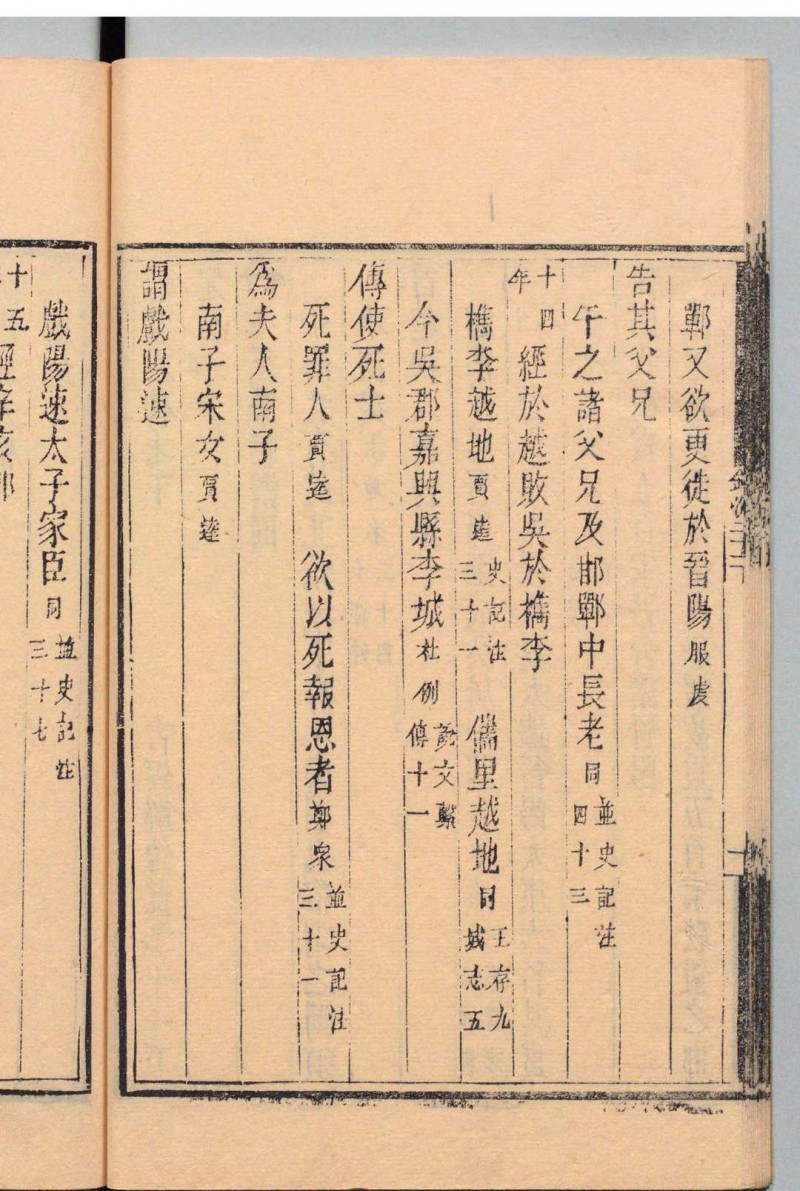 鄲又欲更徙於晉陽服虔
告其父兄
午之諸父兄及邯鄲中長老同並史記注四十三
十四年經於越敗吳於檇李
檇李越地賈逵史記注三十一檇里越地同王存九域志五
今吳郡嘉興縣李城杜例說文繫傳十一
傳使死士
死罪人賈逵欲以死報恩者鄭衆並史記注三十一
爲夫人南子
南子宋女賈逵
謂戲陽速
戲陽速太子家臣同並史記注三十七
十五